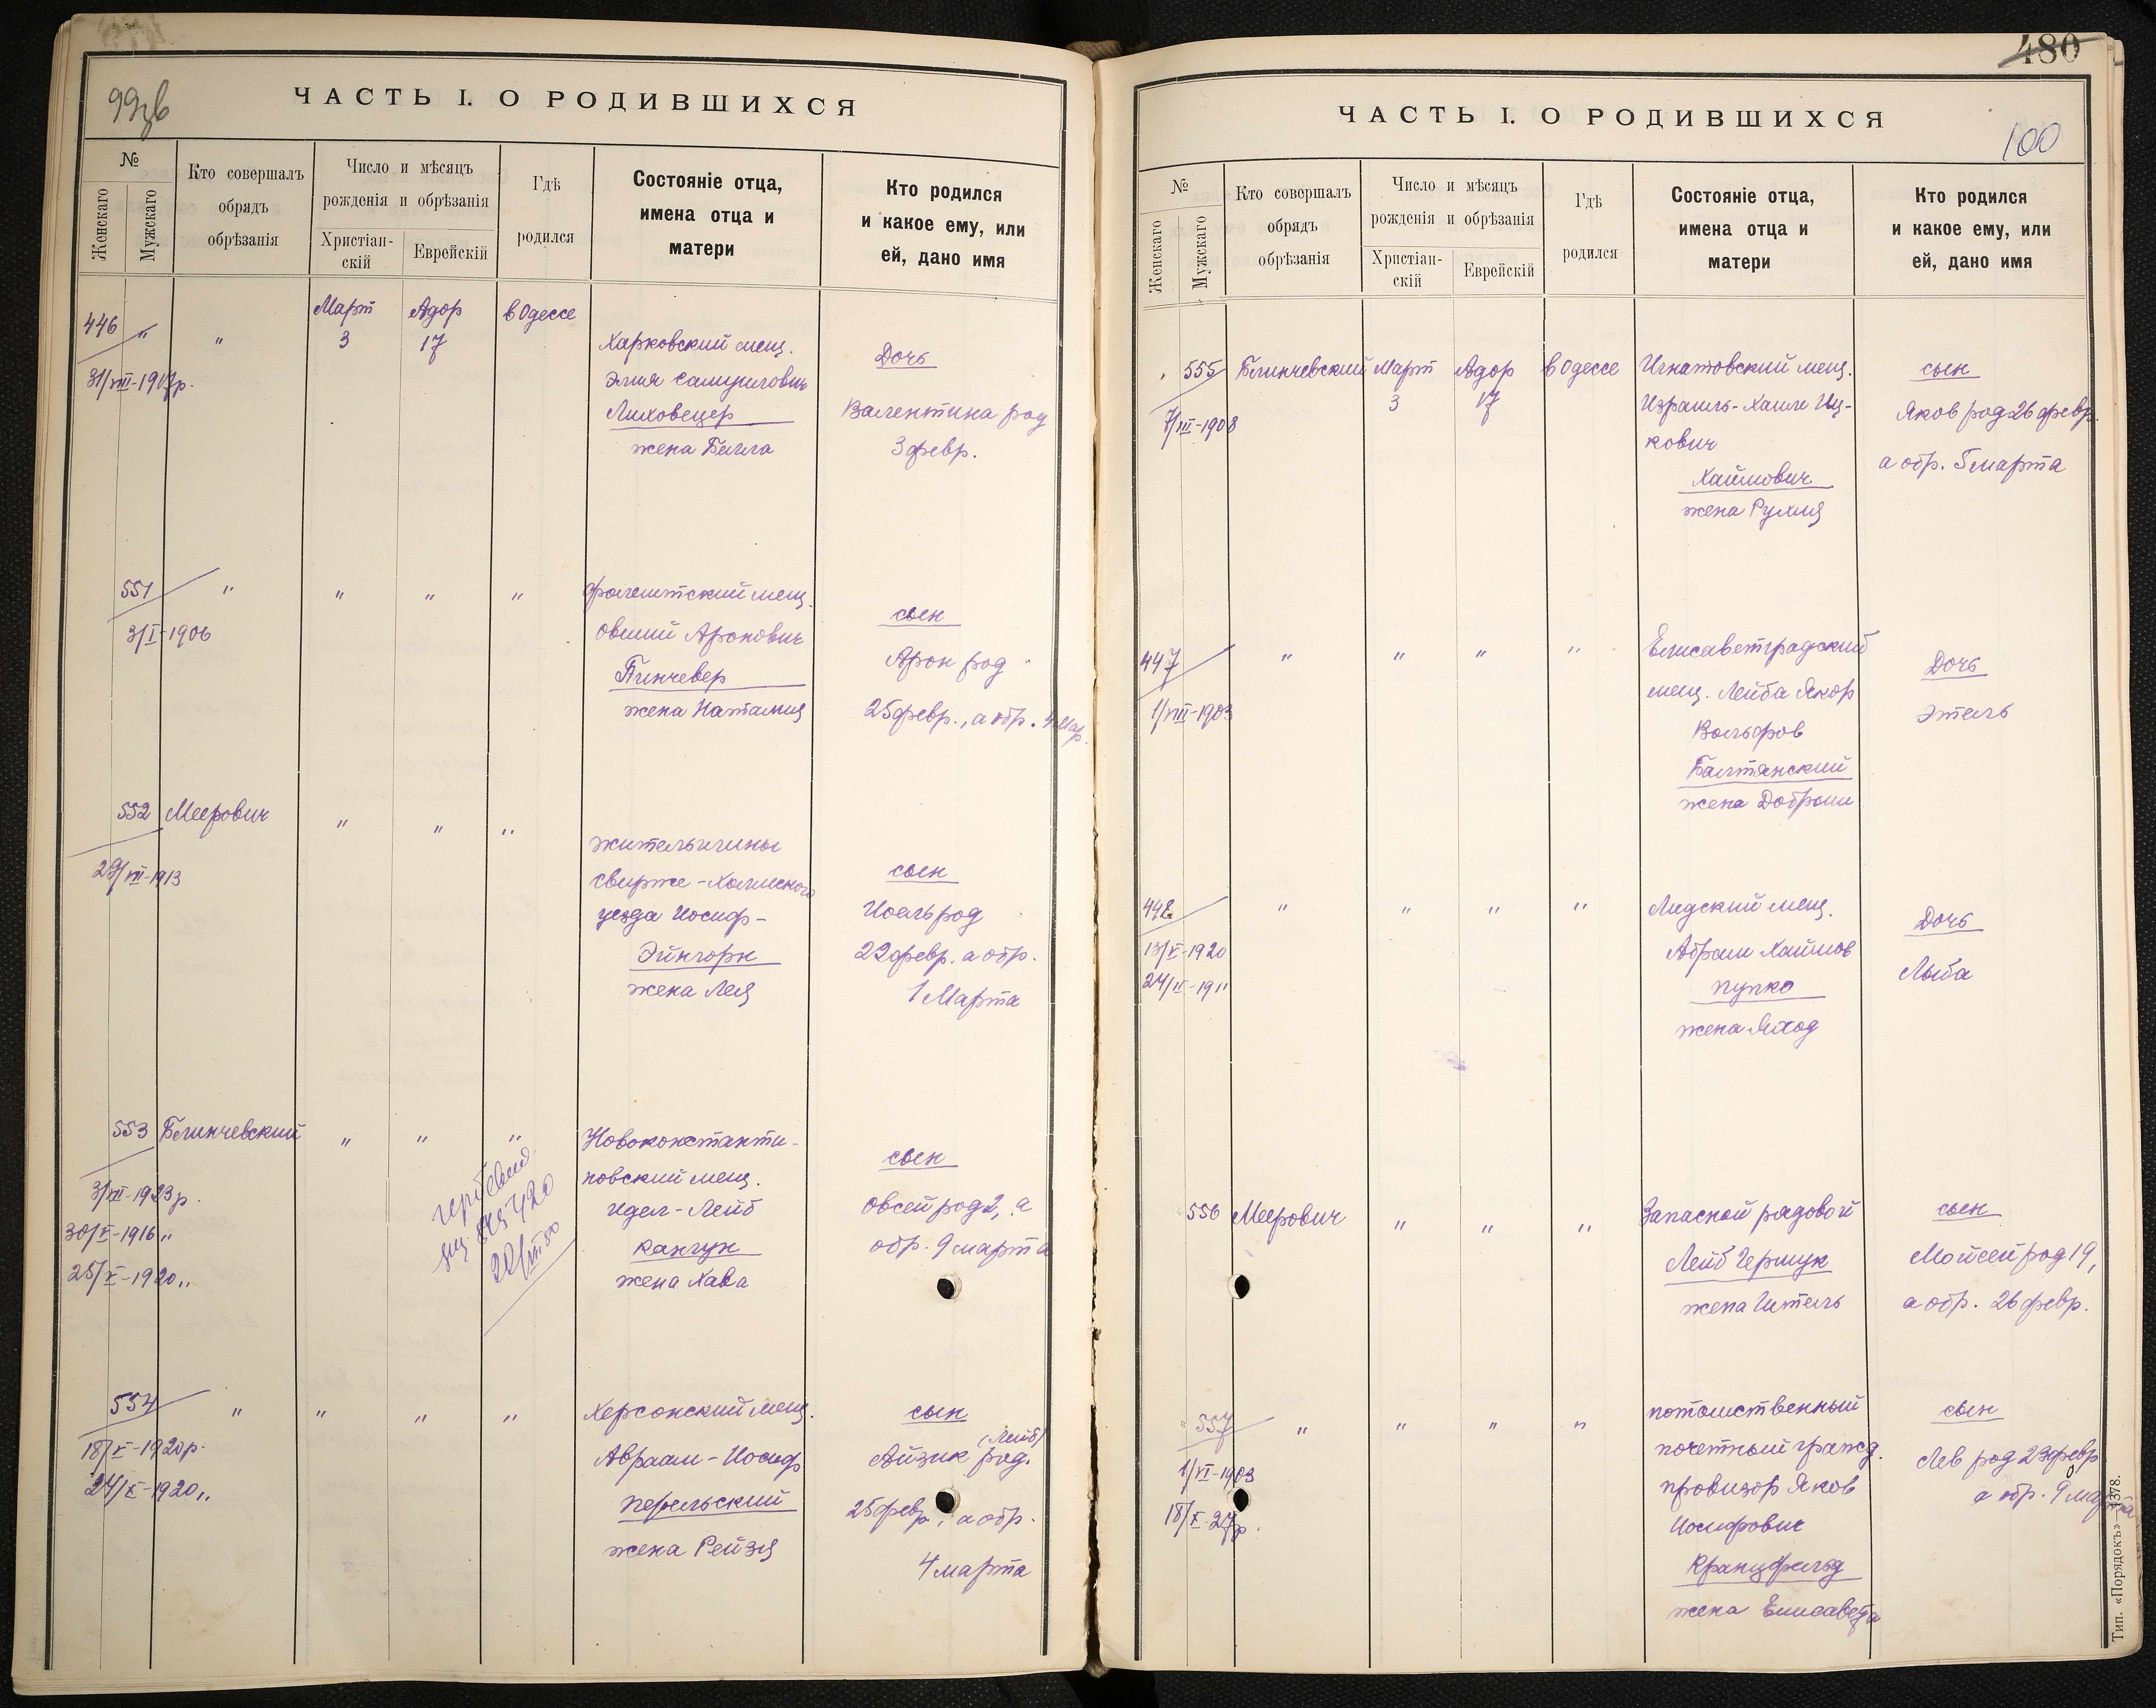 99зв
ЧАСТЬ I. О РОДИВШИХСЯ
№
Женскаго
Мужскаго
Кто совершалъ
обрядъ
обрѣзанія
Число и мѣсяцъ
рожденія и обрѣзанія
Христіан-
скій
Еврейскій
Гдѣ
родился
Состояніе отца,
имена отца и
матери
Кто родился
и какое ему, или
ей, дано имя
446 " " Март Адор в Одессе
3 17
31/VIII-1907р.
Харковский мещ.
Элия
Лиховецер
жена Бейла
Дочь
Валентина род
3 февр.
551 " " " "
3/I-1906
Фалештский мещ.
Овший Аронович
Пинчевер
жена Наталия
сын
Арон род
25 февр., а обр. 4 мар.
552 Меерович " " "
29/VIII-1913
жительгмины
свирже-Холмского
уезда Иосиф-
Эйнгорн
жена Лея
сын
Иоель род
22 февр. а обр.
1 Марта
553 Блинчевский " " "
3/VIII-1923р.
30/V-1916 "
25/X-1920 "
Новоконстанти-
новский мещ.
Идел-Лейб
Канчук
жена Хава
сын
Овсей род 2, а
обр. 9 марта
554 " " " "
18/X-1920р.
24/X-1920 "
Херсонский мещ.
Авраам-Иосиф
жена Рейзя
сын
(Лейб)
Айзик род.
25 февр., а обр.
4 марта
480
ЧАСТЬ I. О РОДИВШИХСЯ
100
№
Женскаго
Мужскаго
Кто совершалъ
обрядъ
обрѣзанія
Число и мѣсяцъ
рожденія и обрѣзанія
Христіан-
скій
Еврейскій
Гдѣ
родился
Состояніе отца,
имена отца и
матери
Кто родился
и какое ему, или
ей, дано имя
555 Блинчевский Март Адор в Одессе
3 17
7/VII-1908
Игнатовский мещ.
Израиль-Хаим Иц-
кович
Хаймович
жена Рухля
сын
Яков род 26 февр.
а обр. 5 марта
447 " " " "
1/VIII-1903
Елисаветградский
мещ. Лейба Якор
Вольфов
Балтянский
жена Доброш
Дочь
Этель
448 " " " "
13/X-1920
24/II-1911
Лидский мещ.
Абрам Хаимов
Пупко
жена Яход
Дочь
Лыба
556 Меерович " " "
Запасной рядовой
Лейб Чермук
жена Ителъ
сын
Мойсей род 19,
а обр. 26 февр.
557 " " " "
1/VI-1903
18/X-27р.
потомственный
почетный гражд.
провизор Яков
Иосифович
Кранцфельд
жена Елисавета
сын
Лев род 23 февр
а обр. 9 марта
Тип. «Порядокъ»—1378.